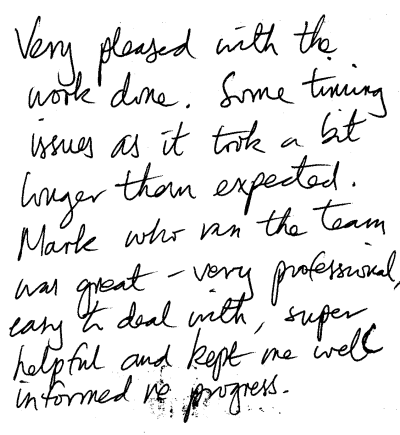 Very pleased with the
work done. Some timing
issues as it took a bit
longer than expected.
Mark who ran the team
was great - very professional,
easy to deal with, super
helpful and kept me well
informed re progress.